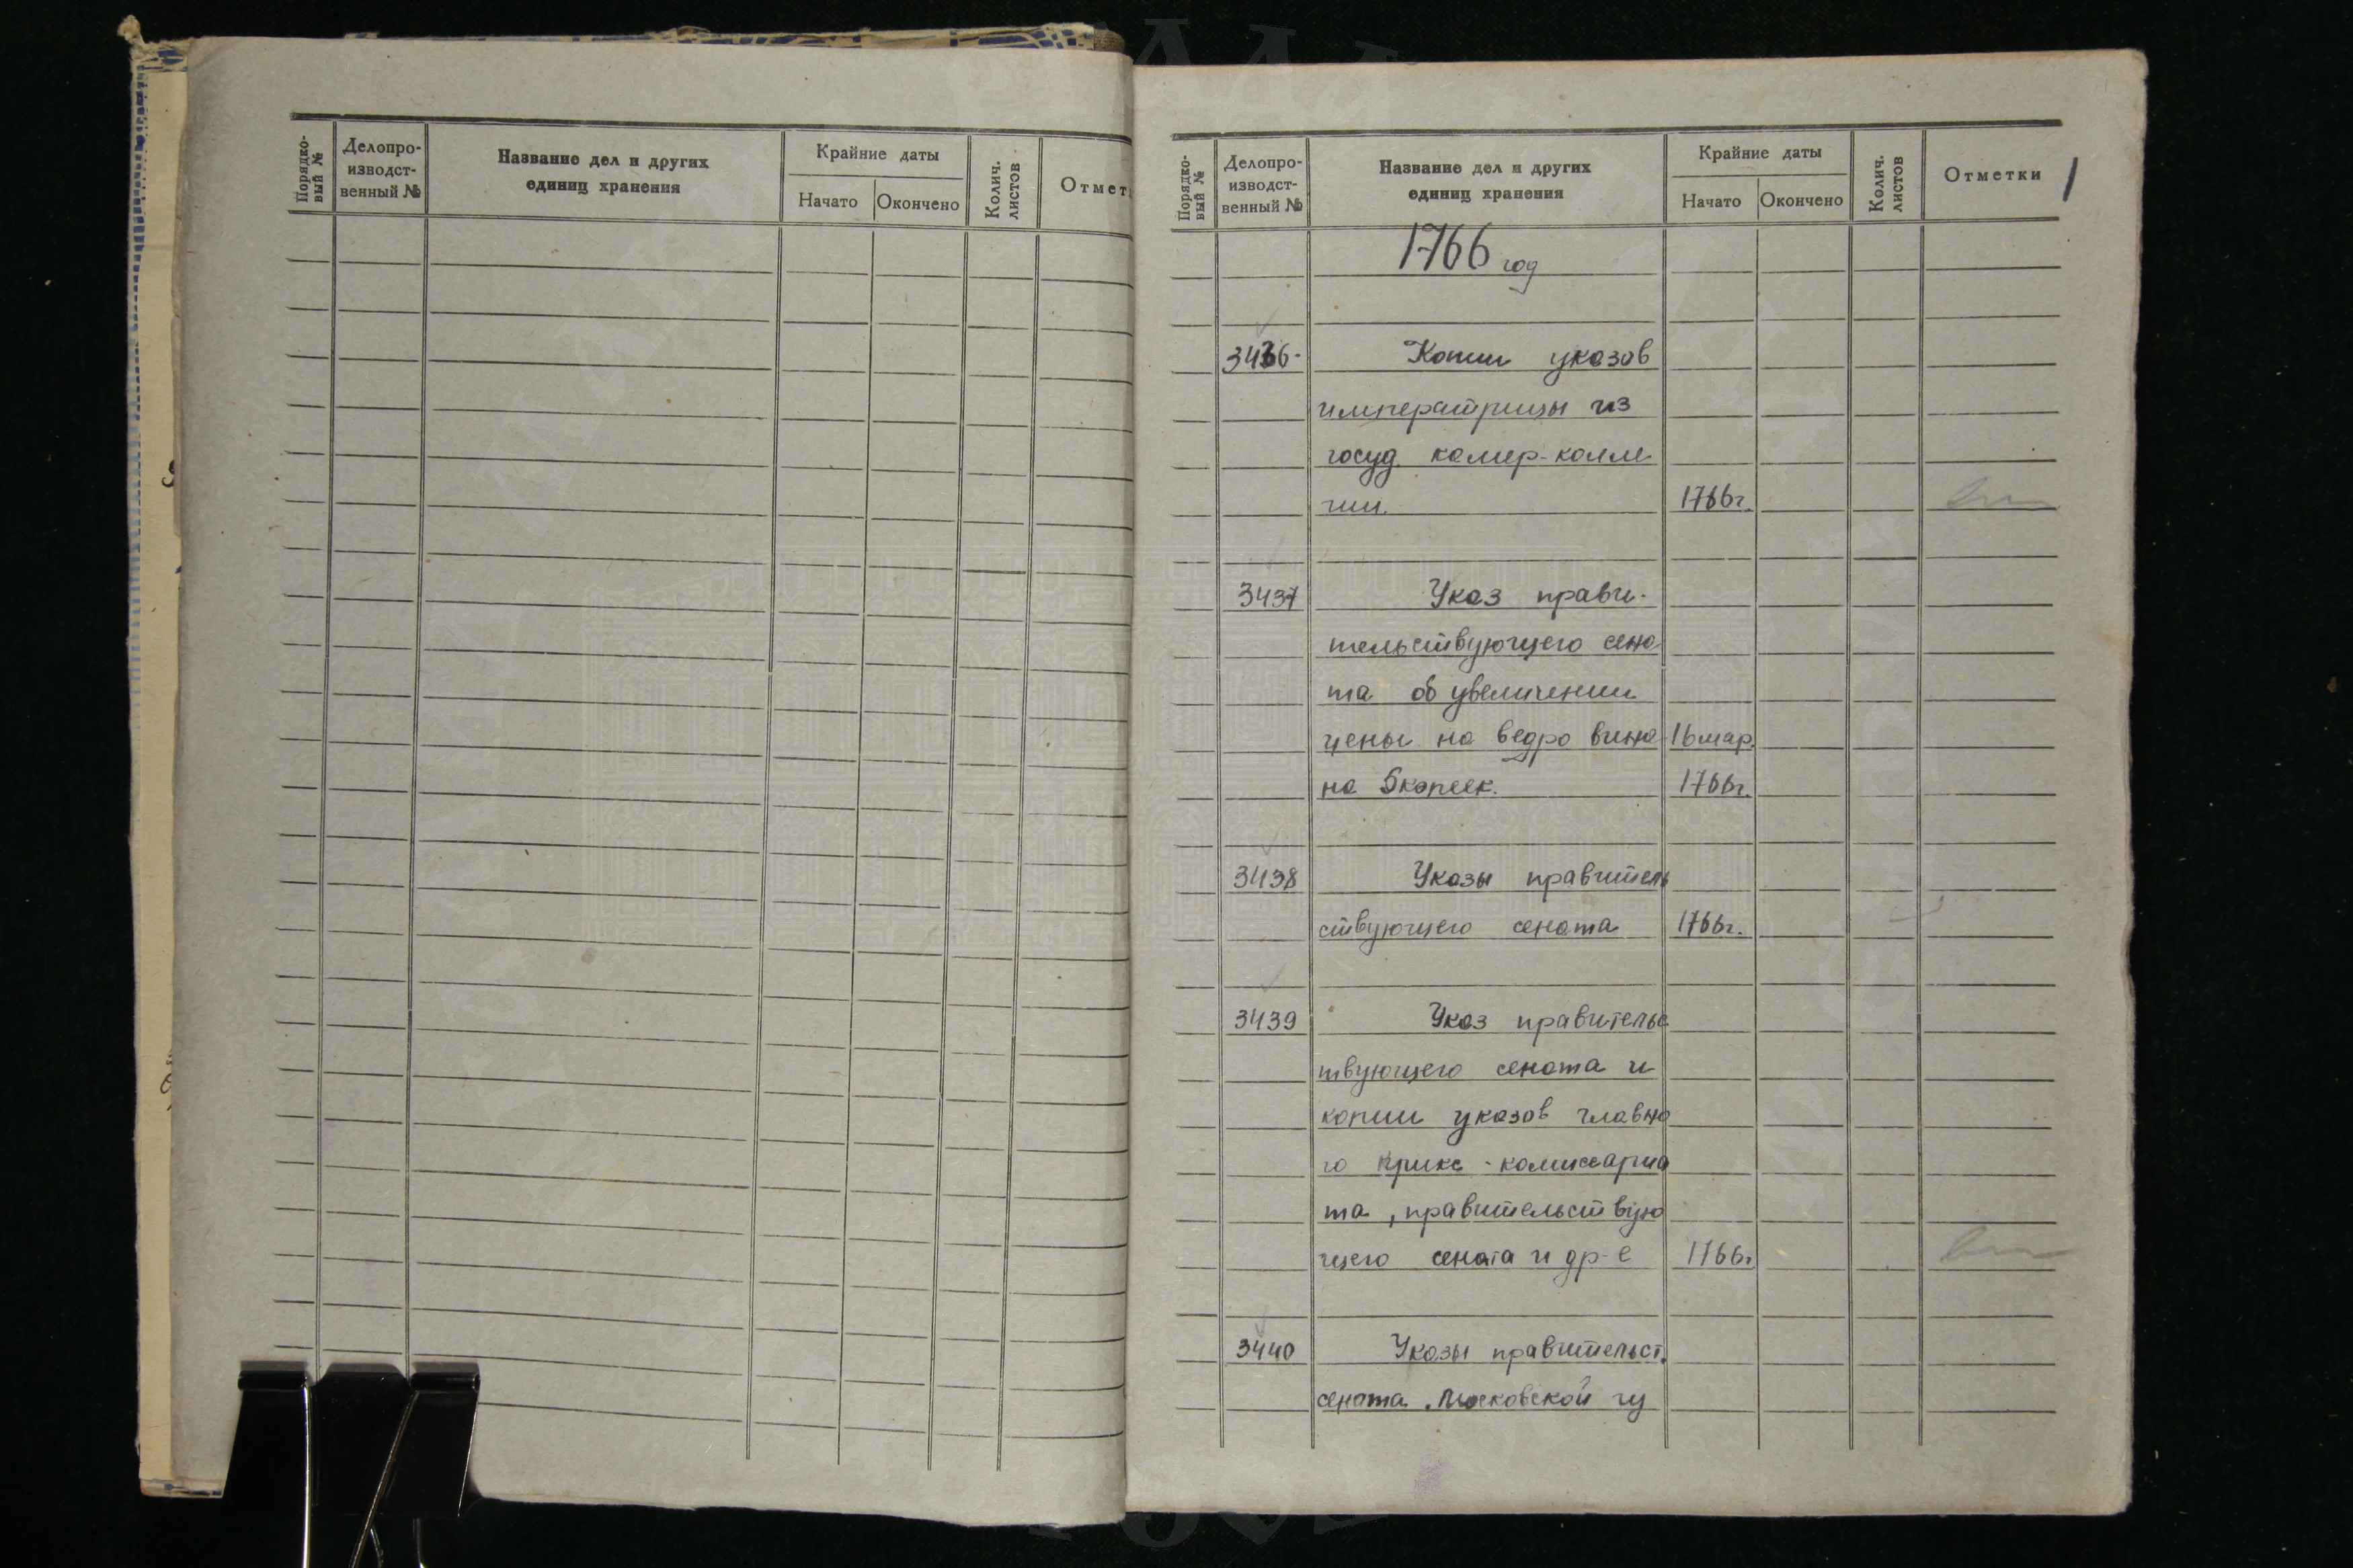 Порядко-
вый №
Делопро-
изводст-
венный №
Название дел и других
единиц хранения
Крайние даты
Начато
Окончено
Колич.
листов
Отмет
Порядко-
вый №
Делопро-
изводст-
венный №
Название дел и других
единиц хранения
Крайние даты
Начато
Окончено
Колич.
листов
Отметки
1
1766 год
3436- Копии указов
императрицы из
госуд. камер-колле
гии. 1766г.
3437 Указ прави-
тельствующего сена
та об увеличении
цены на ведро вина 16 мар.
на 5 копеек. 1766г.
3438 Указы правитель
ствующего сената 1766г.
3439 Указ правительс
твующего сената и
копии указов главно
го крикс-комиссариа
та, правительствую
щего сената и др-е 1766г
3440 Указы правительст.
сената. Московской гу